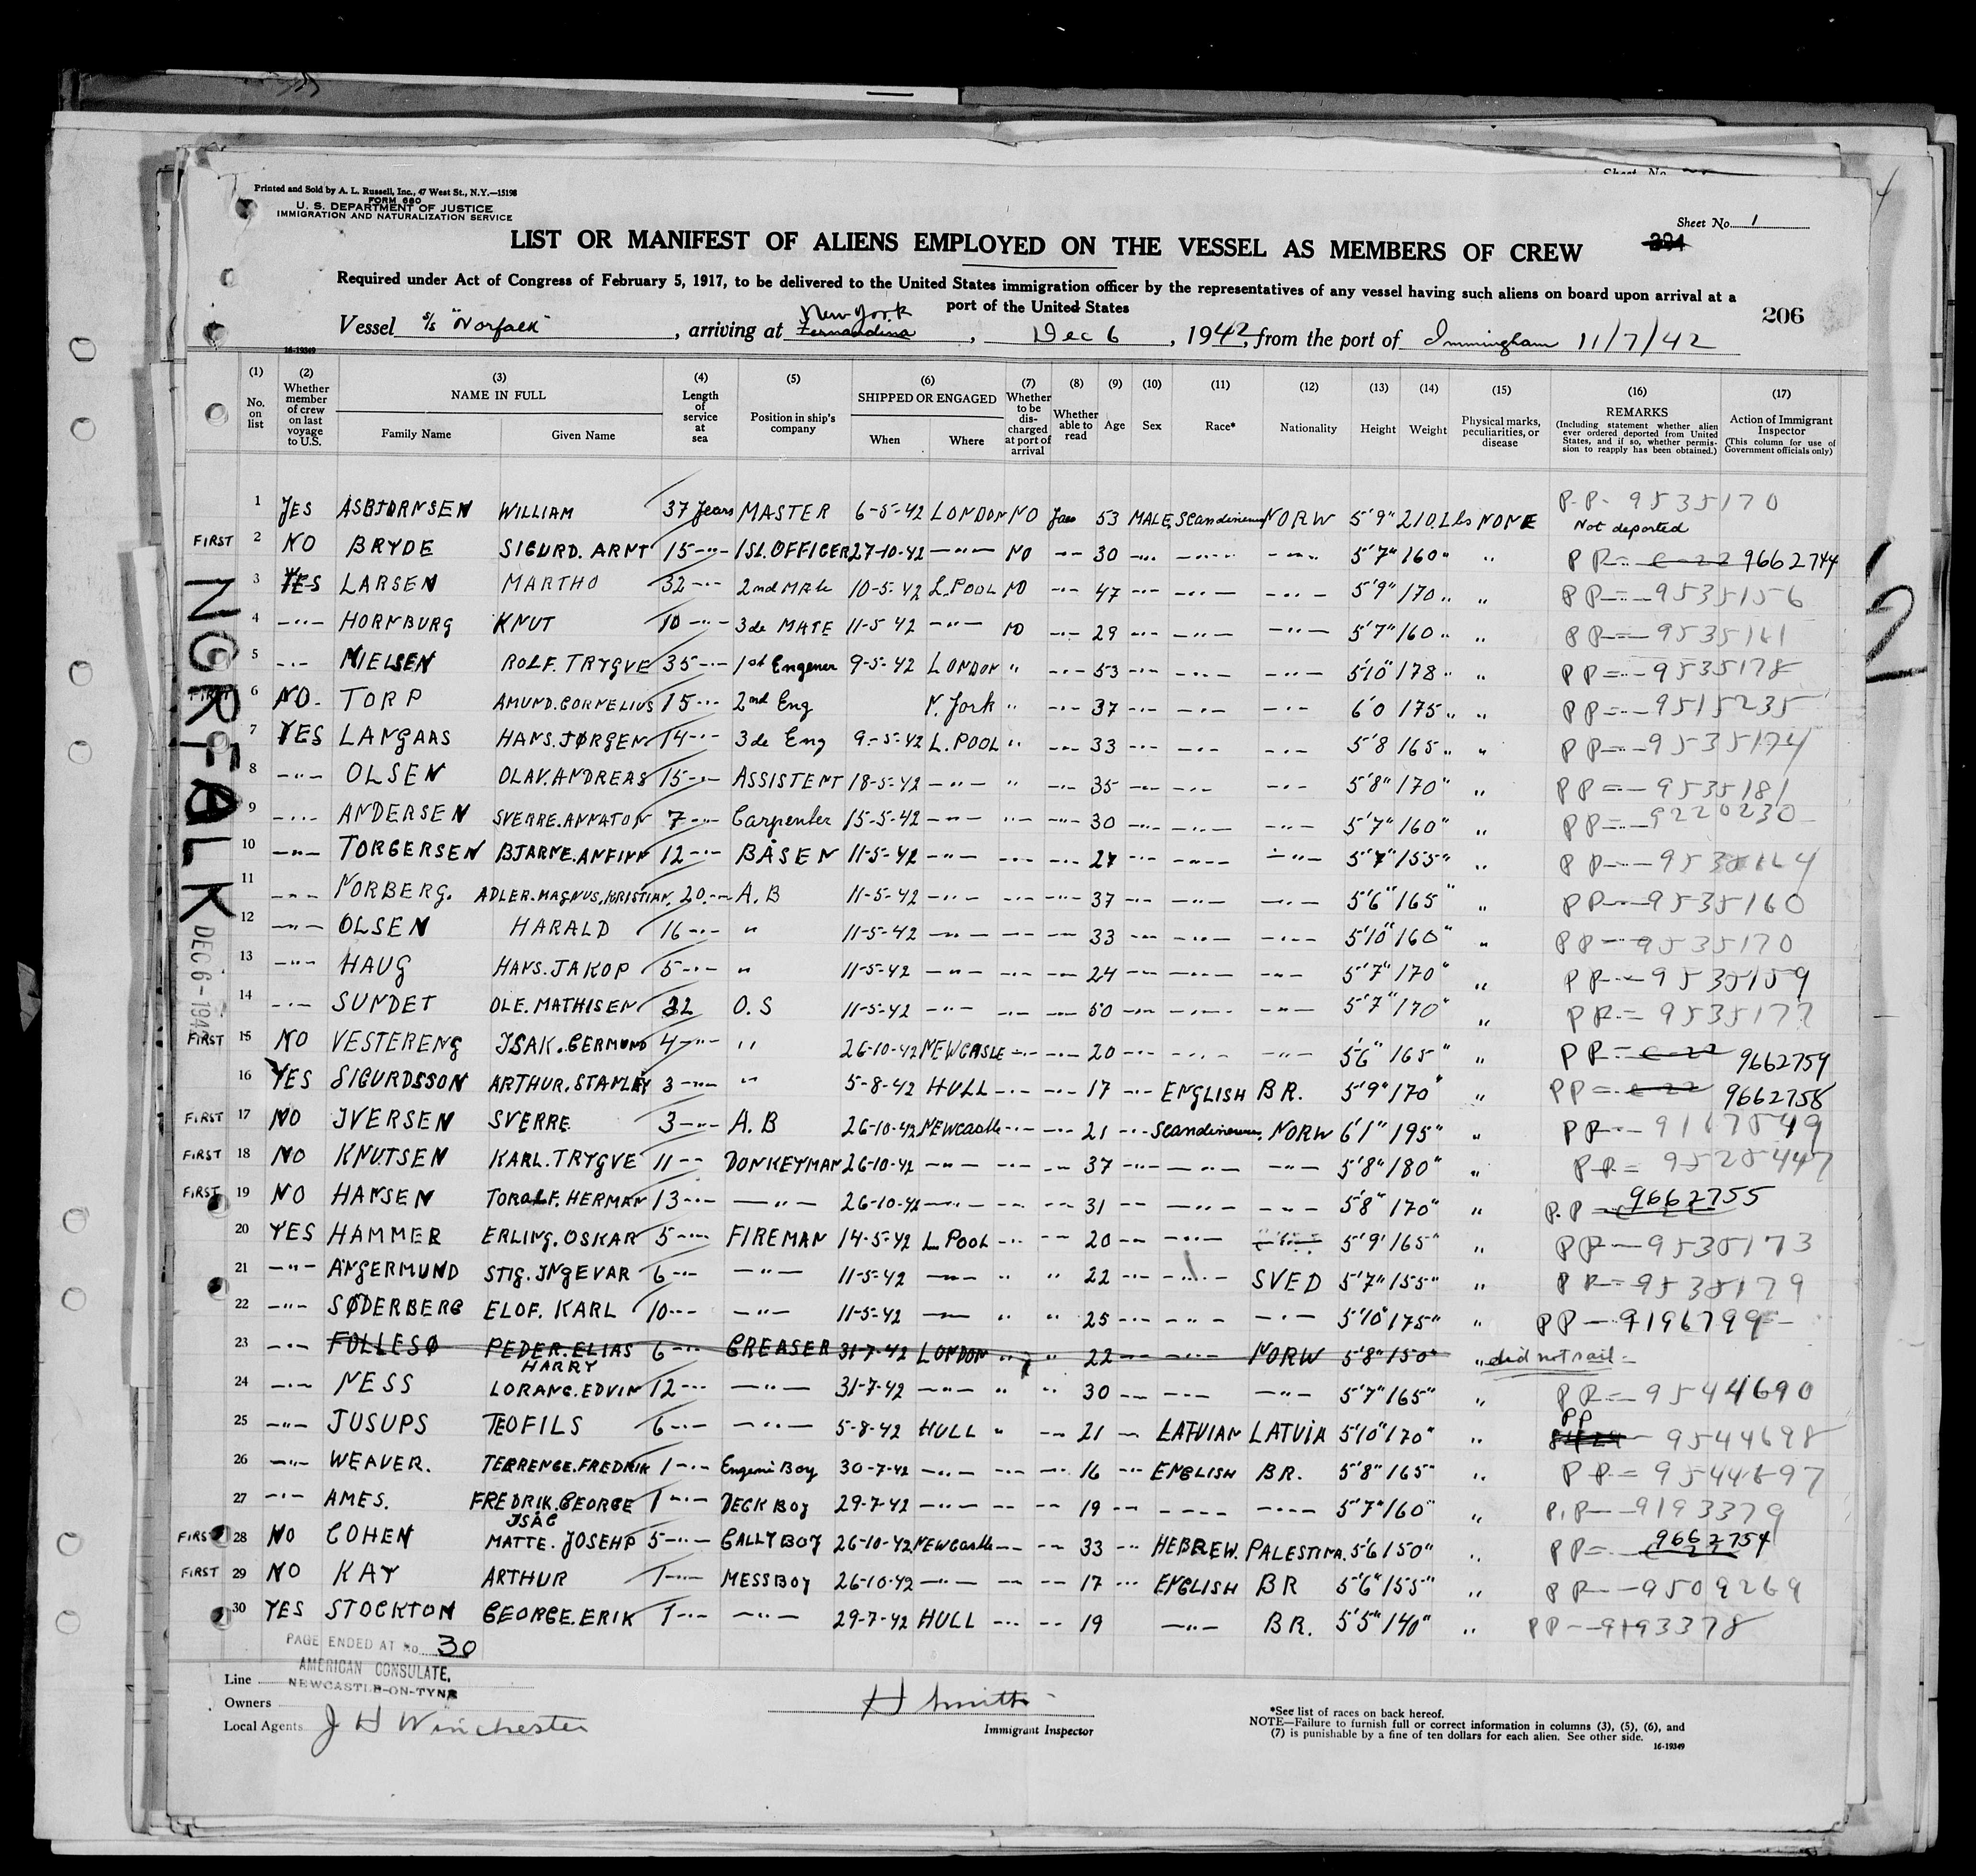 Printed and Sold by A. L. Russell, Inc., 47 West St., N.Y.—15198
FORM 680
U. S. DEPARTMENT OF JUSTICE
IMMIGRATION AND NATURALIZATION SERVICE
Sheet No.
Sheet No. 1
LIST OR MANIFEST OF ALIENS EMPLOYED ON THE VESSEL AS MEMBERS OF CREW
Required under Act of Congress of February 5, 1917, to be delivered to the United States immigration officer by the representatives of any vessel having such aliens on board upon arrival at a
port of the United States
206
New York
Vessel S/S "Norfalk", arriving at Fernandina, Dec 6, 1942, from the port of Immingham 11/7/42
16-19349
(1) (2) (3) (4) (5) (6) (7) (8) (9) (10) (11) (12) (13) (14) (15) (16) (17)
No. on list
Whether member of crew on last voyage to U.S.
NAME IN FULL
Family Name Given Name
Length of service at sea
Position in ship's company
SHIPPED OR ENGAGED
When Where
Whether to be discharged at port of arrival
Whether able to read
Age Sex Race* Nationality Height Weight
Physical marks, peculiarities, or disease
REMARKS
(Including statement whether alien ever ordered deported from United States, and if so, whether permission to reapply has been obtained.)
Action of Immigrant Inspector
(This column for use of Government officials only)
NORFALK
DEC 6 - 1942
1 YES ASBJORNSEN WILLIAM 37 Years MASTER 6-5-42 LONDON NO 53 MALE Scandinavian NORW 5'9" 210 Lbs NONE P.P. 9535170
Not deported
FIRST 2 NO BRYDE SIGURD. ARNT 15 -"- 1st. OFFICER 27-10-42 -"- NO -"- 30 -"- -"- -"- 5'7" 160 " " PP 9662744
3 YES LARSEN MARTHO 32 -"- 2nd Mate 10-5-42 L.POOL NO -"- 47 -"- -"- -"- 5'9" 170 " " PP 9535156
4 -"- HORNBURG KNUT 10 -"- 3de MATE 11-5-42 -"- NO -"- 29 -"- -"- -"- 5'7" 160 " " PP
5 -"- NIELSEN ROLF. TRYGVE 35 -"- 1st Engener 9-5-42 LONDON " -"- 53 -"- -"- -"- 5'10" 178 " " PP 9535178
FIRST 6 NO. TORP AMUND. CORNELIUS 15 -"- 2nd Eng N. York " -"- 37 -"- -"- -"- 6'0 175 " " PP 9515235
7 YES LANGAAS HANS. JØRGEN 14 -"- 3de Eng 9-5-42 L.POOL " -"- 33 -"- -"- -"- 5'8 165 " " PP 9535174
8 -"- OLSEN OLAV. ANDREAS 15 -"- ASSISTENT 18-5-42 -"- " -"- 35 -"- -"- -"- 5'8" 170 " " PP 9535181
9 -"- ANDERSEN SVERRE. ANNATON 7 -"- Carpenter 15-5-42 -"- -"- -"- 30 -"- -"- -"- 5'7" 160 " " PP 9220230
10 -"- TORGERSEN BJARNE. ANFINN 12 -"- BÅSEN 11-5-42 -"- -"- -"- 27 -"- -"- -"- 5'7" 155 " " PP
11 -"- NORBERG. ADLER. MAGNUS. KRISTIAN. 20 -"- A.B 11-5-42 -"- -"- -"- 37 -"- -"- -"- 5'6" 165 " " PP 9535160
12 -"- OLSEN HARALD 16 -"- " 11-5-42 -"- -"- -"- 33 -"- -"- -"- 5'10" 160 " " PP 9535170
13 -"- HAUG HANS. JAKOP 5 -"- " 11-5-42 -"- -"- -"- 24 -"- -"- -"- 5'7" 170 " " PP 9535159
14 -"- SUNDET OLE. MATHISEN 32 O.S 11-5-42 -"- -"- -"- 50 -"- -"- -"- 5'7" 170 " " PP 9535177
FIRST 15 NO VESTERENG ISAK. GERMUND 4 -"- " 26-10-42 NEWCASLE -"- -"- 20 -"- -"- -"- 5'6" 165 " " PP 9662759
16 YES SIGURDSSON ARTHUR. STANLEY 3 -"- " 5-8-42 HULL -"- -"- 17 -"- ENGLISH BR. 5'9" 170 " PP 9662758
FIRST 17 NO IVERSEN SVERRE 3 -"- A.B 26-10-42 NEWcastle -"- -"- 21 -"- Scandinavian. NORW 6'1" 195 " " PP 9167849
FIRST 18 NO KNUTSEN KARL. TRYGVE 11 -"- DONKEYMAN 26-10-42 -"- -"- -"- 37 -"- -"- -"- 5'8" 180 " " PP 9525447
FIRST 19 NO HANSEN TORALF. HERMAN 13 -"- -"- 26-10-42 -"- -"- -"- 31 -"- -"- -"- 5'8" 170 " " P.P 9662755
20 YES HAMMER ERLING. OSKAR 5 -"- FIREMAN 14-5-42 L.POOL -"- -"- 20 -"- -"- -"- 5'9" 165 " " PP 9535173
21 -"- ÅNGERMUND STIG. INGEVAR 6 -"- -"- 11-5-42 -"- " " 22 -"- -"- SVED 5'7" 155 " " PP 9535179
22 -"- SØDERBERG ELOF. KARL 10 -"- -"- 11-5-42 -"- " " 25 -"- -"- -"- 5'10" 175 " " PP 9196799
23 -"- FOLLESØ PEDER. ELIAS 6 -"- GREASER 31-7-42 LONDON " " 22 -"- -"- NORW 5'8" 150 " " did not sail
HARRY
24 -"- NESS LORANG. EDVIN 12 -"- -"- 31-7-42 -"- " " 30 -"- -"- -"- 5'7" 165 " " PP 9544690
25 -"- JUSUPS TEOFILS 6 -"- -"- 5-8-42 HULL " -"- 21 - LATVIAN LATVIA 5'10" 170 " " PP 9544698
26 -"- WEAVER. TERRENGE. FREDRIK 1 -"- Engene Boy 30-7-42 -"- -"- -"- 16 -"- ENGLISH BR. 5'8" 165 " " PP 9544697
27 -"- AMES. FREDRIK. GEORGE 1 -"- DECK BOY 29-7-42 -"- -"- -"- 19 -"- -"- -"- 5'7" 160 " " P.P 9193379
ISAC
FIRST 28 NO COHEN MATTE. JOSEHP 5 -"- GALLY BOY 26-10-42 NEWcastle -"- -"- 33 -"- HEBREW. PALESTINA. 5'6 150 " " PP 9662754
FIRST 29 NO KAY ARTHUR 1 -"- MESSBOY 26-10-42 -"- -"- -"- 17 -"- ENGLISH BR 5'6" 155 " " PP 9509269
30 YES STOCKTON GEORGE. ERIK 1 -"- -"- 29-7-42 HULL -"- -"- 19 -"- BR. 5'5" 140 " " PP 9193378
PAGE ENDED AT No. 30
AMERICAN CONSULATE,
NEWCASTLE-ON-TYNE
Line
Owners
Local Agents J H Winchester
H Smith
Immigrant Inspector
*See list of races on back hereof.
NOTE—Failure to furnish full or correct information in columns (3), (5), (6), and
(7) is punishable by a fine of ten dollars for each alien. See other side.
16-19349